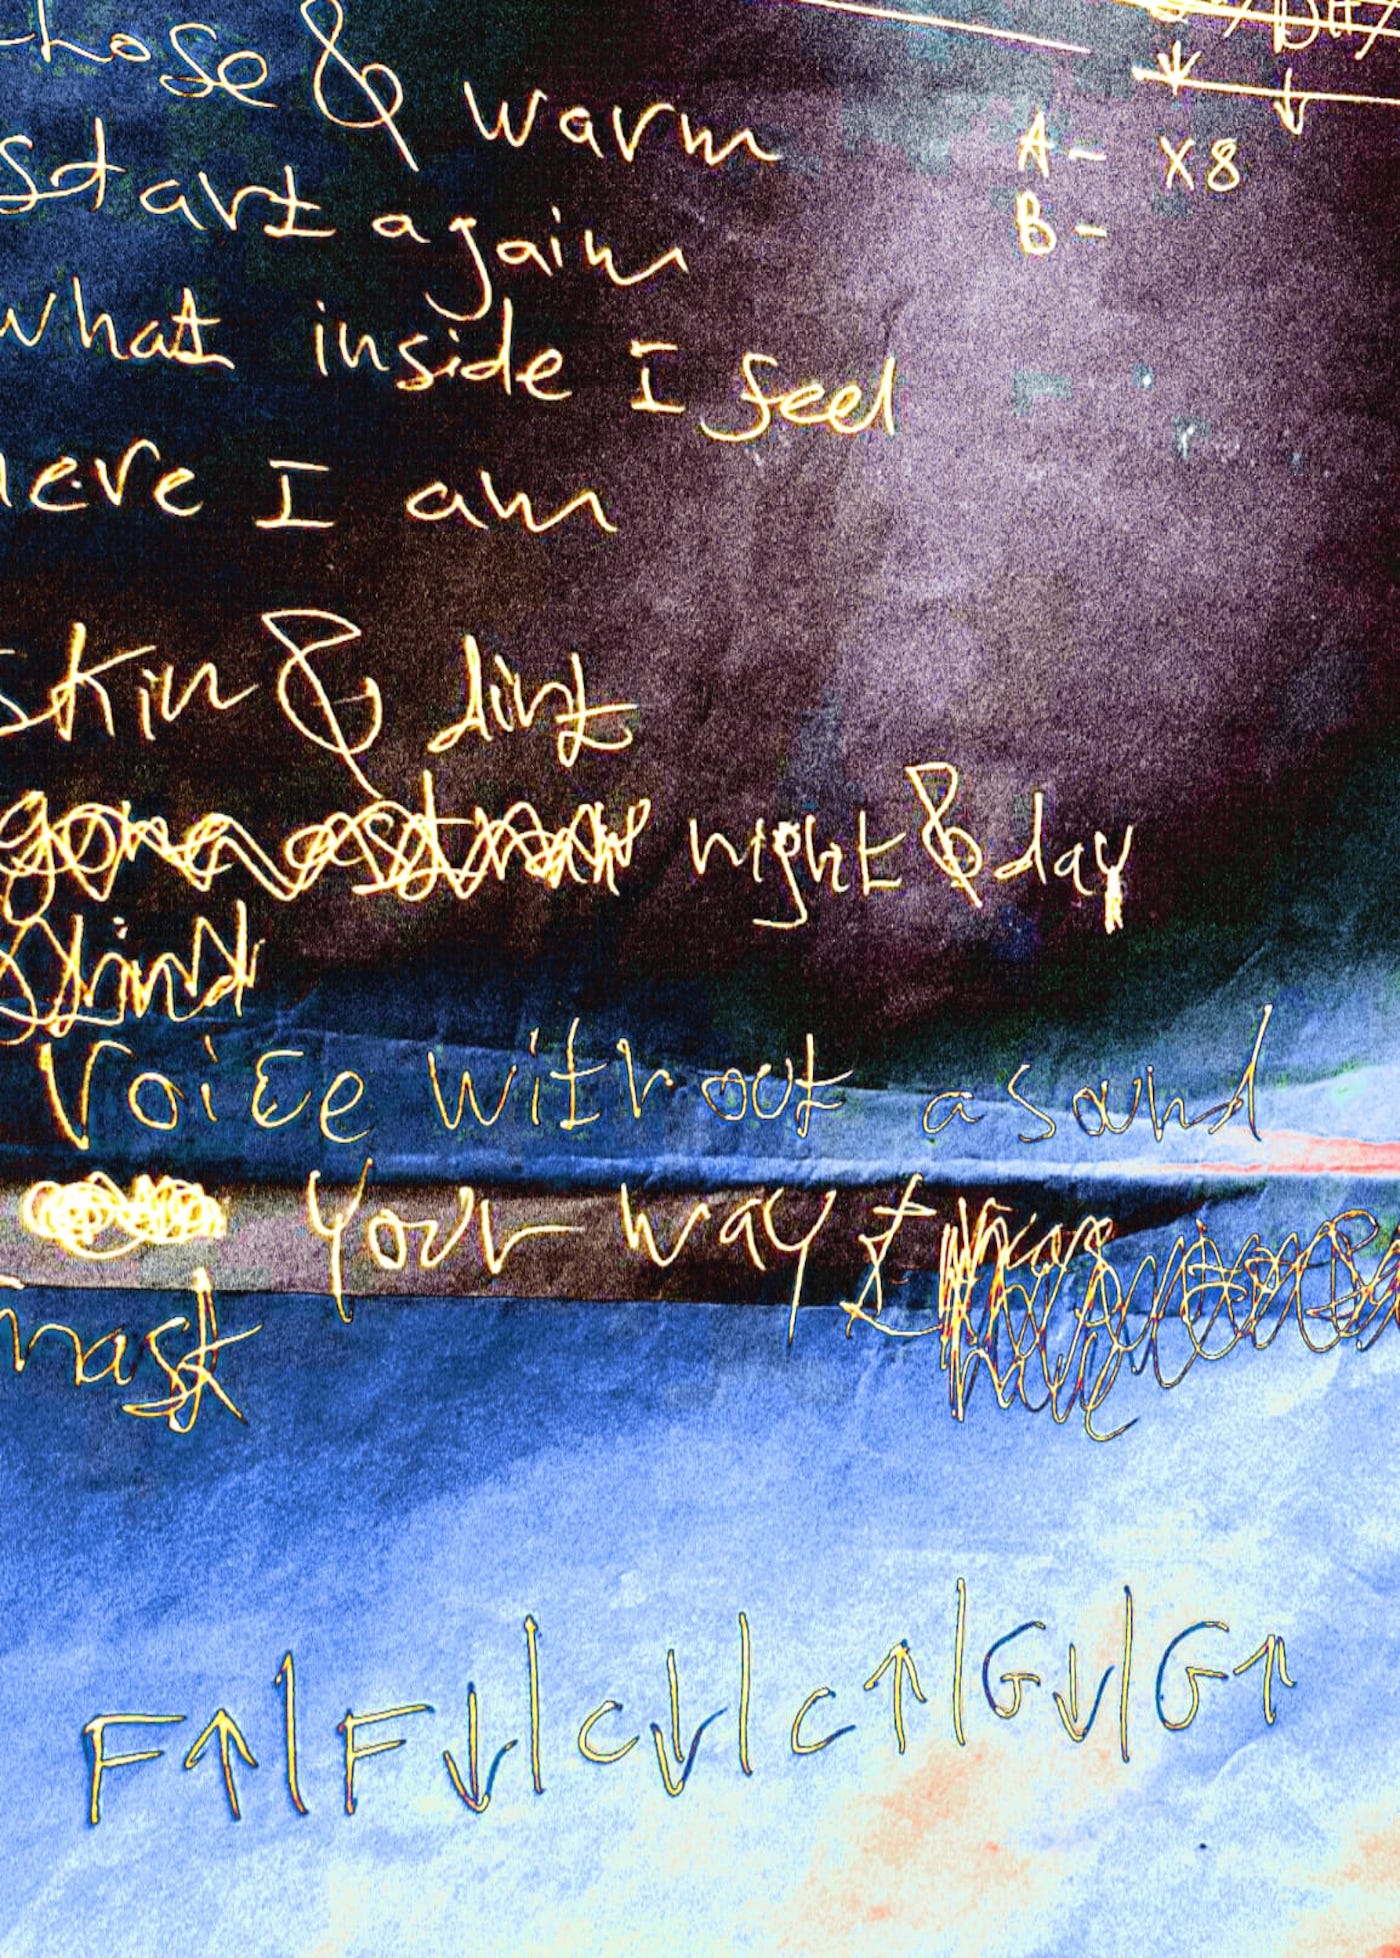 A - x8
B -
& warm
start again
what inside I feel
I am
skin & dirt
night & day
Voice without a sound
your way
mask
F↑|F↓|C↓|C↑|G↓|G↑